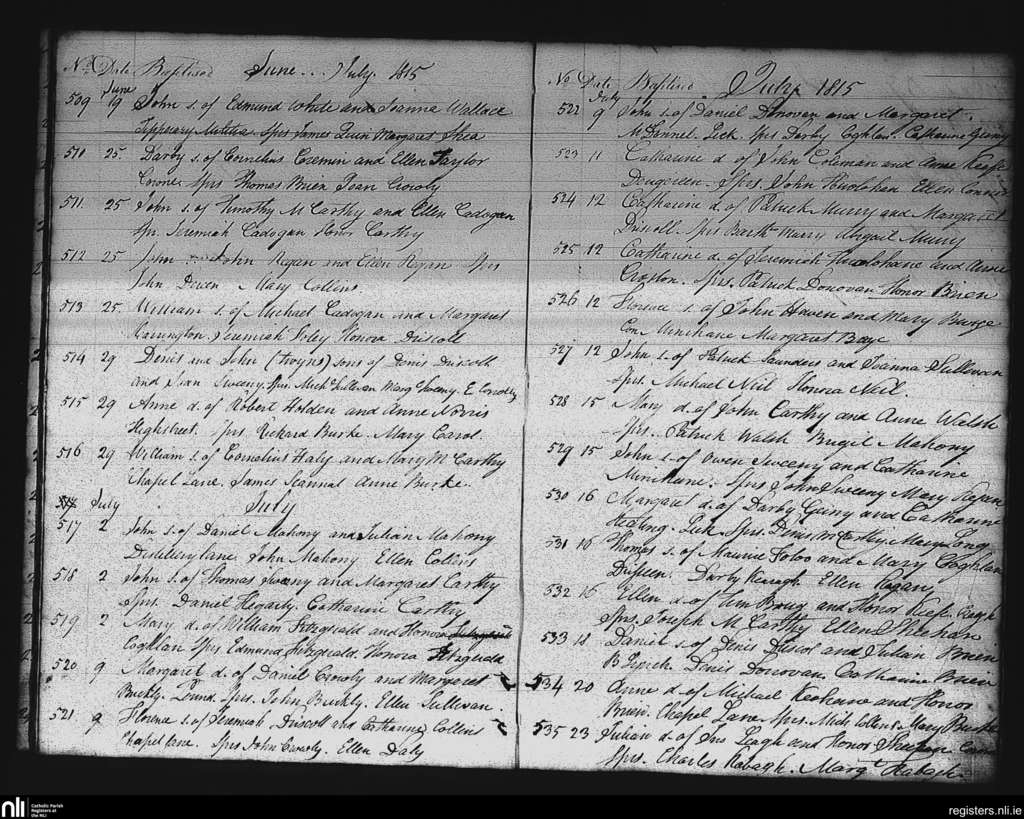 No Date Baptised June... July. 1815
June
509 19 John s. of Edmund White and Joanna Wallace
Tipperary Militia. Sprs James Quin Margaret Shea
510 25 Darby s. of Cornelius Cremin and Ellen Taylor
Sprs Thomas Brien Joan Crowly
511 25 John s. of Timothy McCarthy and Ellen Cadogan
Spr. Jeremiah Cadogan Honor Carthy
512 25 John John Regan and Ellen Regan Sprs
John Mary Collins.
513 25 William s. of Michael Cadogan and Margaret
Jeremiah Foley Honora Driscoll
514 29 Denis and John (twyns) sons of Denis Driscoll
and Joan Sweeny. Sprs. Mich Sullivan Marg Sweeny. E Conolly
515 29 Anne d. of Robert Holden and Anne Norris
Highstreet. Sprs. Richard Burke. Mary Carol.
516 29 William s. of Cornelius Haly and Mary McCarthy
Chapel Lane. James Scannal Anne Burke.
July July
517 2 John s. of Daniel Mahony and Julian Mahony
Distillery lane. John Mahony Ellen Collins
518 2 John s. of Thomas Sweeny and Margaret Carthy
Sprs. Daniel Hegarty. Catharine Carthy
519 2 Mary d. of William Fitzgerald and Honora
Coghlan Sprs Edmund Fitzgerald. Honora Fitzgerald
520 9 Margaret d. of Daniel Crowly and Margaret
Buckly. Sprs. John Buckly. Ellen Sullivan.
521 9 Florence s. of Jeremiah Driscoll and Catharine Collins
Chapel lane. Sprs John Crowly. Ellen Daly
No Date Baptised July 1815
July
522 9 John s. of Daniel Donovan and Margaret
Lick. Sprs Darby Coghlan. Catharine
523 11 Catharine d. of John Coleman and Anne Keeffe
Sprs. John Houlohan Ellen Connor
524 12 Catharine d. of Patrick Murry and Margaret
Driscoll. Sprs Barth Murry Abigail Murry
525 12 Catharine d. of Jeremiah Houlohane and Anne
Croston. Sprs. Patrick Donovan. Honor Brien
526 12 Florence s. of John and Mary Burge
Con Minihane Margaret
527 12 John s. of Patrick Saunders and Joanna Sullivan
Sprs. Michael Neil Honora Neil.
528 15 Mary d. of John Carthy and Anne Walsh
Sprs. Patrick Walsh Briget Mahony
529 15 John s. of Owen Sweeny and Catharine
Minihane. Sprs John Sweeny Mary Regan
530 16 Margaret d. of Darby and Catharine
Lick Sprs. Denis McCarthy. Mary Long
531 16 Thomas s. of Maurice and Mary Coghlan
Darby Ellen
532 16 Ellen d. of Tim and Honor Keefe
Sprs Joseph McCarthy Ellen Sheehan
533 18 Daniel s. of Denis Driscol and Julian Brien
Denis Donovan. Catharine Brien
534 20 Anne d. of Michael and Honor
Brien. Chapel Lane. Sprs. Mich Collins. Mary Burke
535 23 Julian d. of and Honor
Sprs. Charles Kabagh. Marg Kabagh.
nli Catholic Parish Registers at the NLI
registers.nli.ie